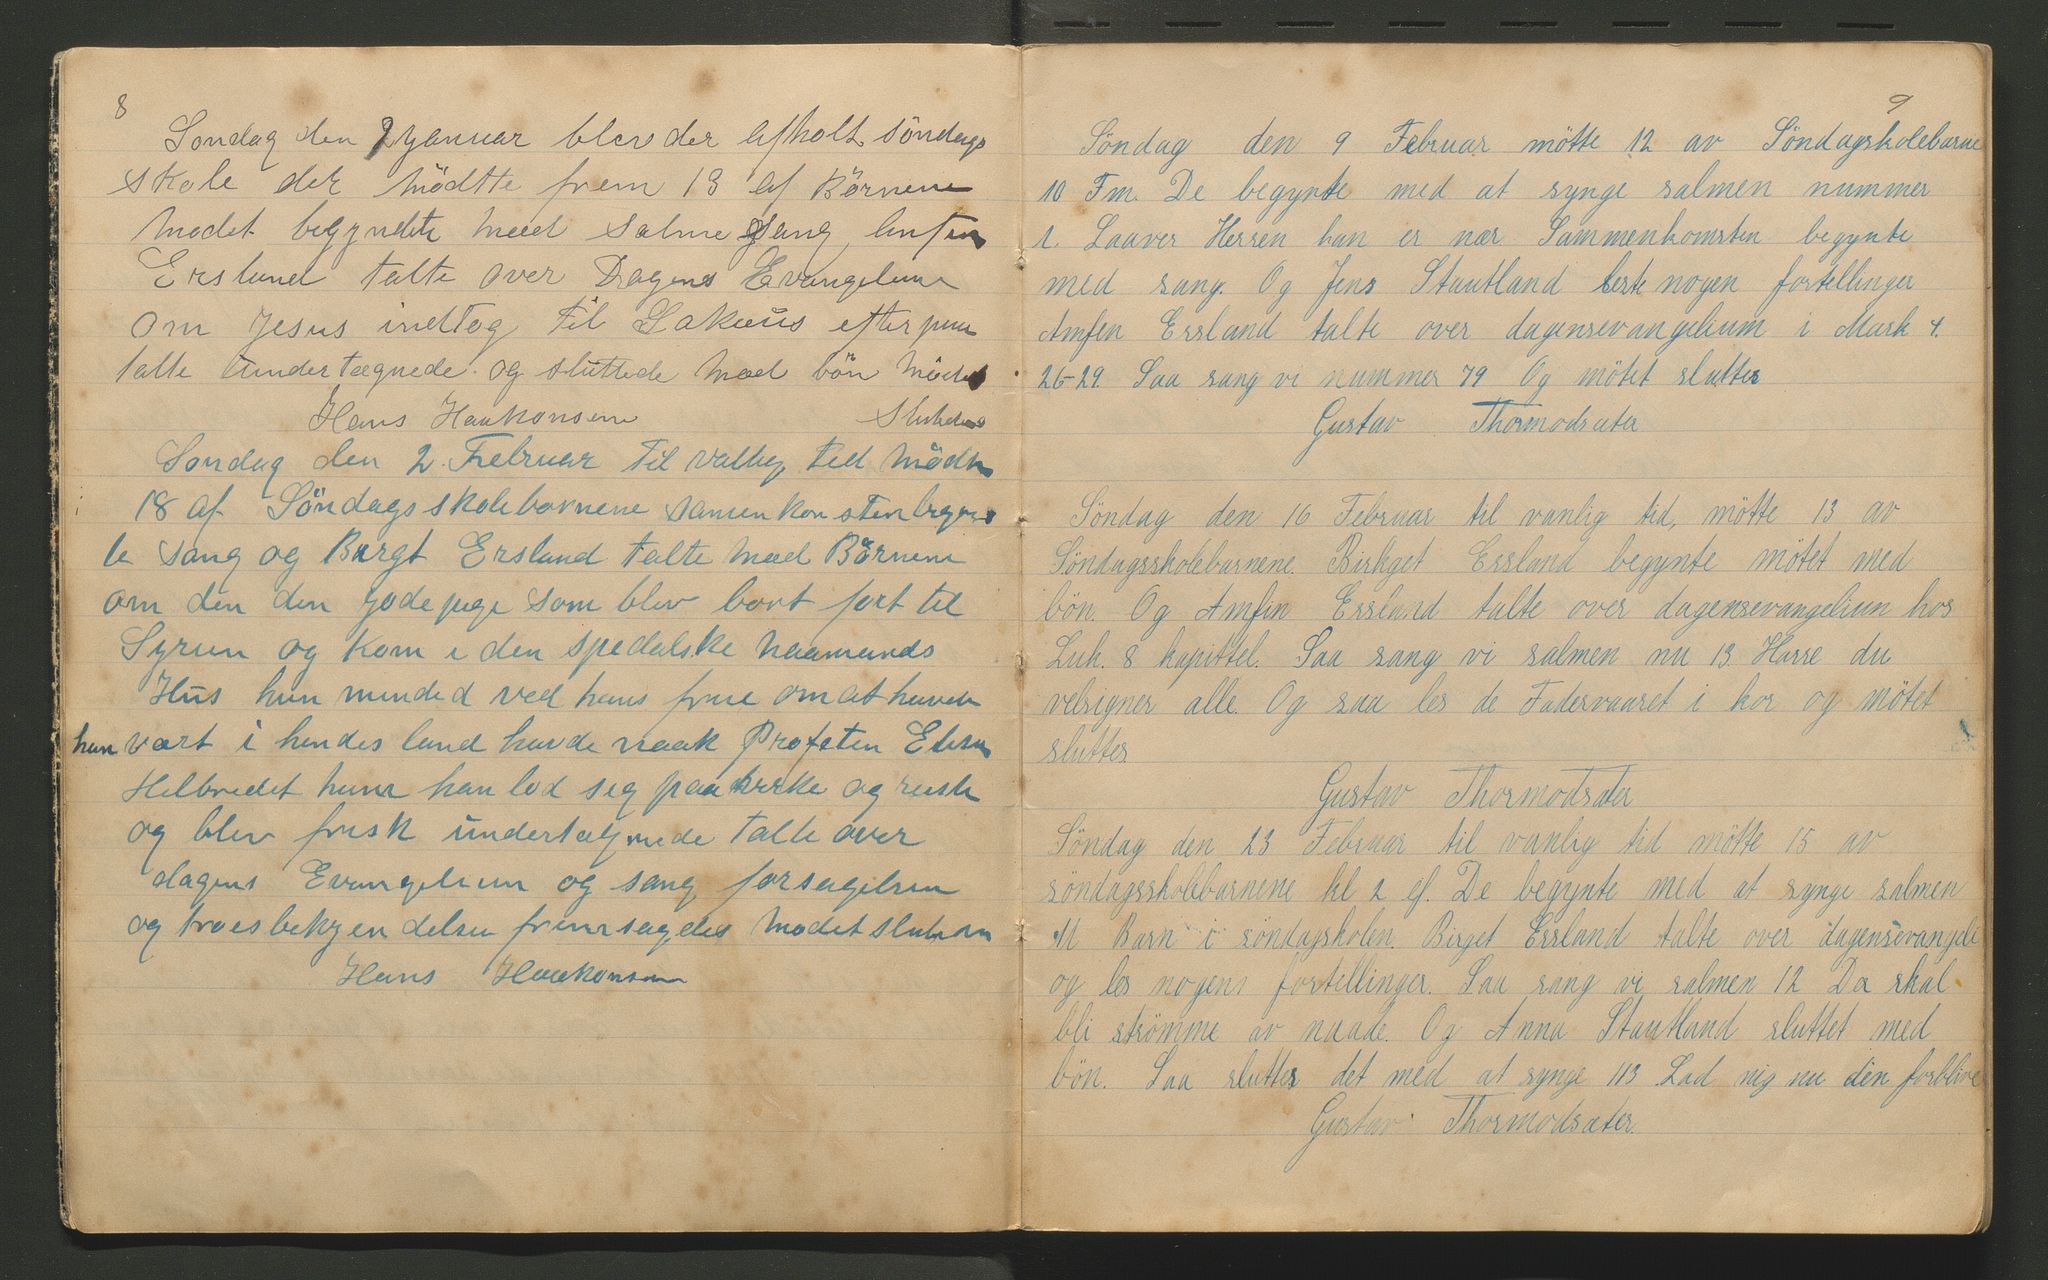 8
Søndag den 2 januar blev der afholt søndags
skole der mødtte frem 13 af Børnene
Mødet begyndte med salme sang, Amfin
Ersland talte over Dagens Evangelium
om Jesus indtog til Sakæus efterpaa
talte undertægnede og sluttede med bön Mødet
Hans Haakonsen sluttedes
Søndag den 2. Februar til vallig tid mødte
18 af Söndagsskolebørnene samenkonsten begyn
te sang og Birgt Ersland talte med Börnene
om den den gode pige som blev bort ført til
Syrien og kom i den spedalske Naamands
Hus hun minded ved hans frue om at havde
han vært i hendes land havde naak Profeten Elisa
Helbredet ham han lod seg paavirke og reiste
og blev frisk undertægnede talte over
dagens Evangelium og sang forsagelsen
og troesbekjendelsen fremsagdes Mødet sluttede
Hans Haakonsen
9
Söndag den 9 Februar mötte 12 av Söndagskolebarne
10 Fm. De begynte med at synge salmen nummer
1. Laaver Herren han er nær Sammenkomsten begynte
med sang. Og Jens Stautland leste nogen fortellinger
Amfin Ersland talte over dagensevangelium i Mark 4.
26-29. Saa sang vi nummer 79 Og mötet sluttes
Gustav Thormodsæter
Söndag den 16 Februar til vanlig tid, mötte 13 av
Söndagsskolebarnene. Birhget Ersland begynte mötet med
bön. Og Amfin Ersland talte over dagensevangelium hos
Luk. 8 kapittel. Saa sang vi salmen nu 13. Harre du
velsigner alle. Og saa les de Fadervaaret i kor og mötet
sluttes
Gustav Thormodsæter
Söndag den 23 Februar til vanlig tid mötte 15 av
söndagsskolebarnene kl 2 ef. De begynte med at synge salmen
11 Barn i söndagskolen. Birget Ersland talte over dagensevangeli
og les nogen fortellinger. Saa sang vi salmen 12 Da skal
bli strömme av naade. Og Anna Stautland sluttet med
bön. Saa sluttes det med at synge 113 Lad mig nu din forblive
Gustav Thormodsæter.